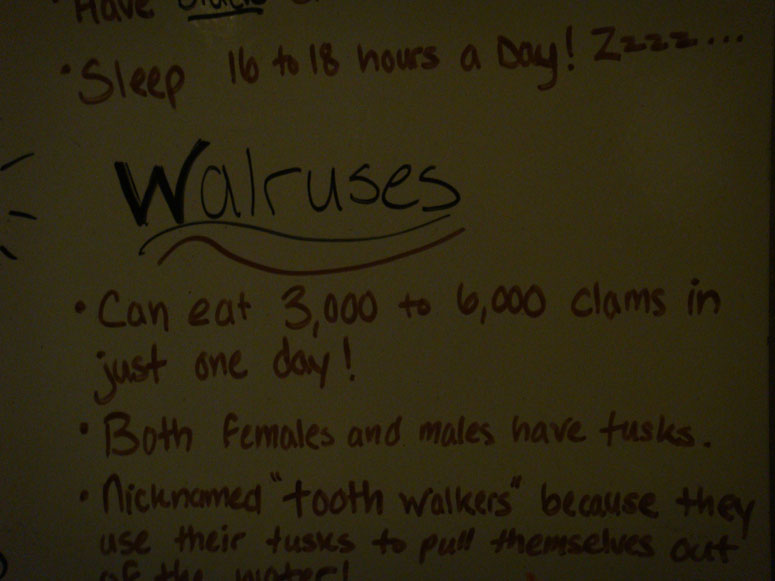 Have
• Sleep 16 to 18 hours a Day! Zzzzz...
Walruses
• Can eat 3,000 to 6,000 clams in
just one day!
• Both females and males have tusks.
• Nicknamed "tooth walkers" because they
use their tusks to pull themselves out
of the water!